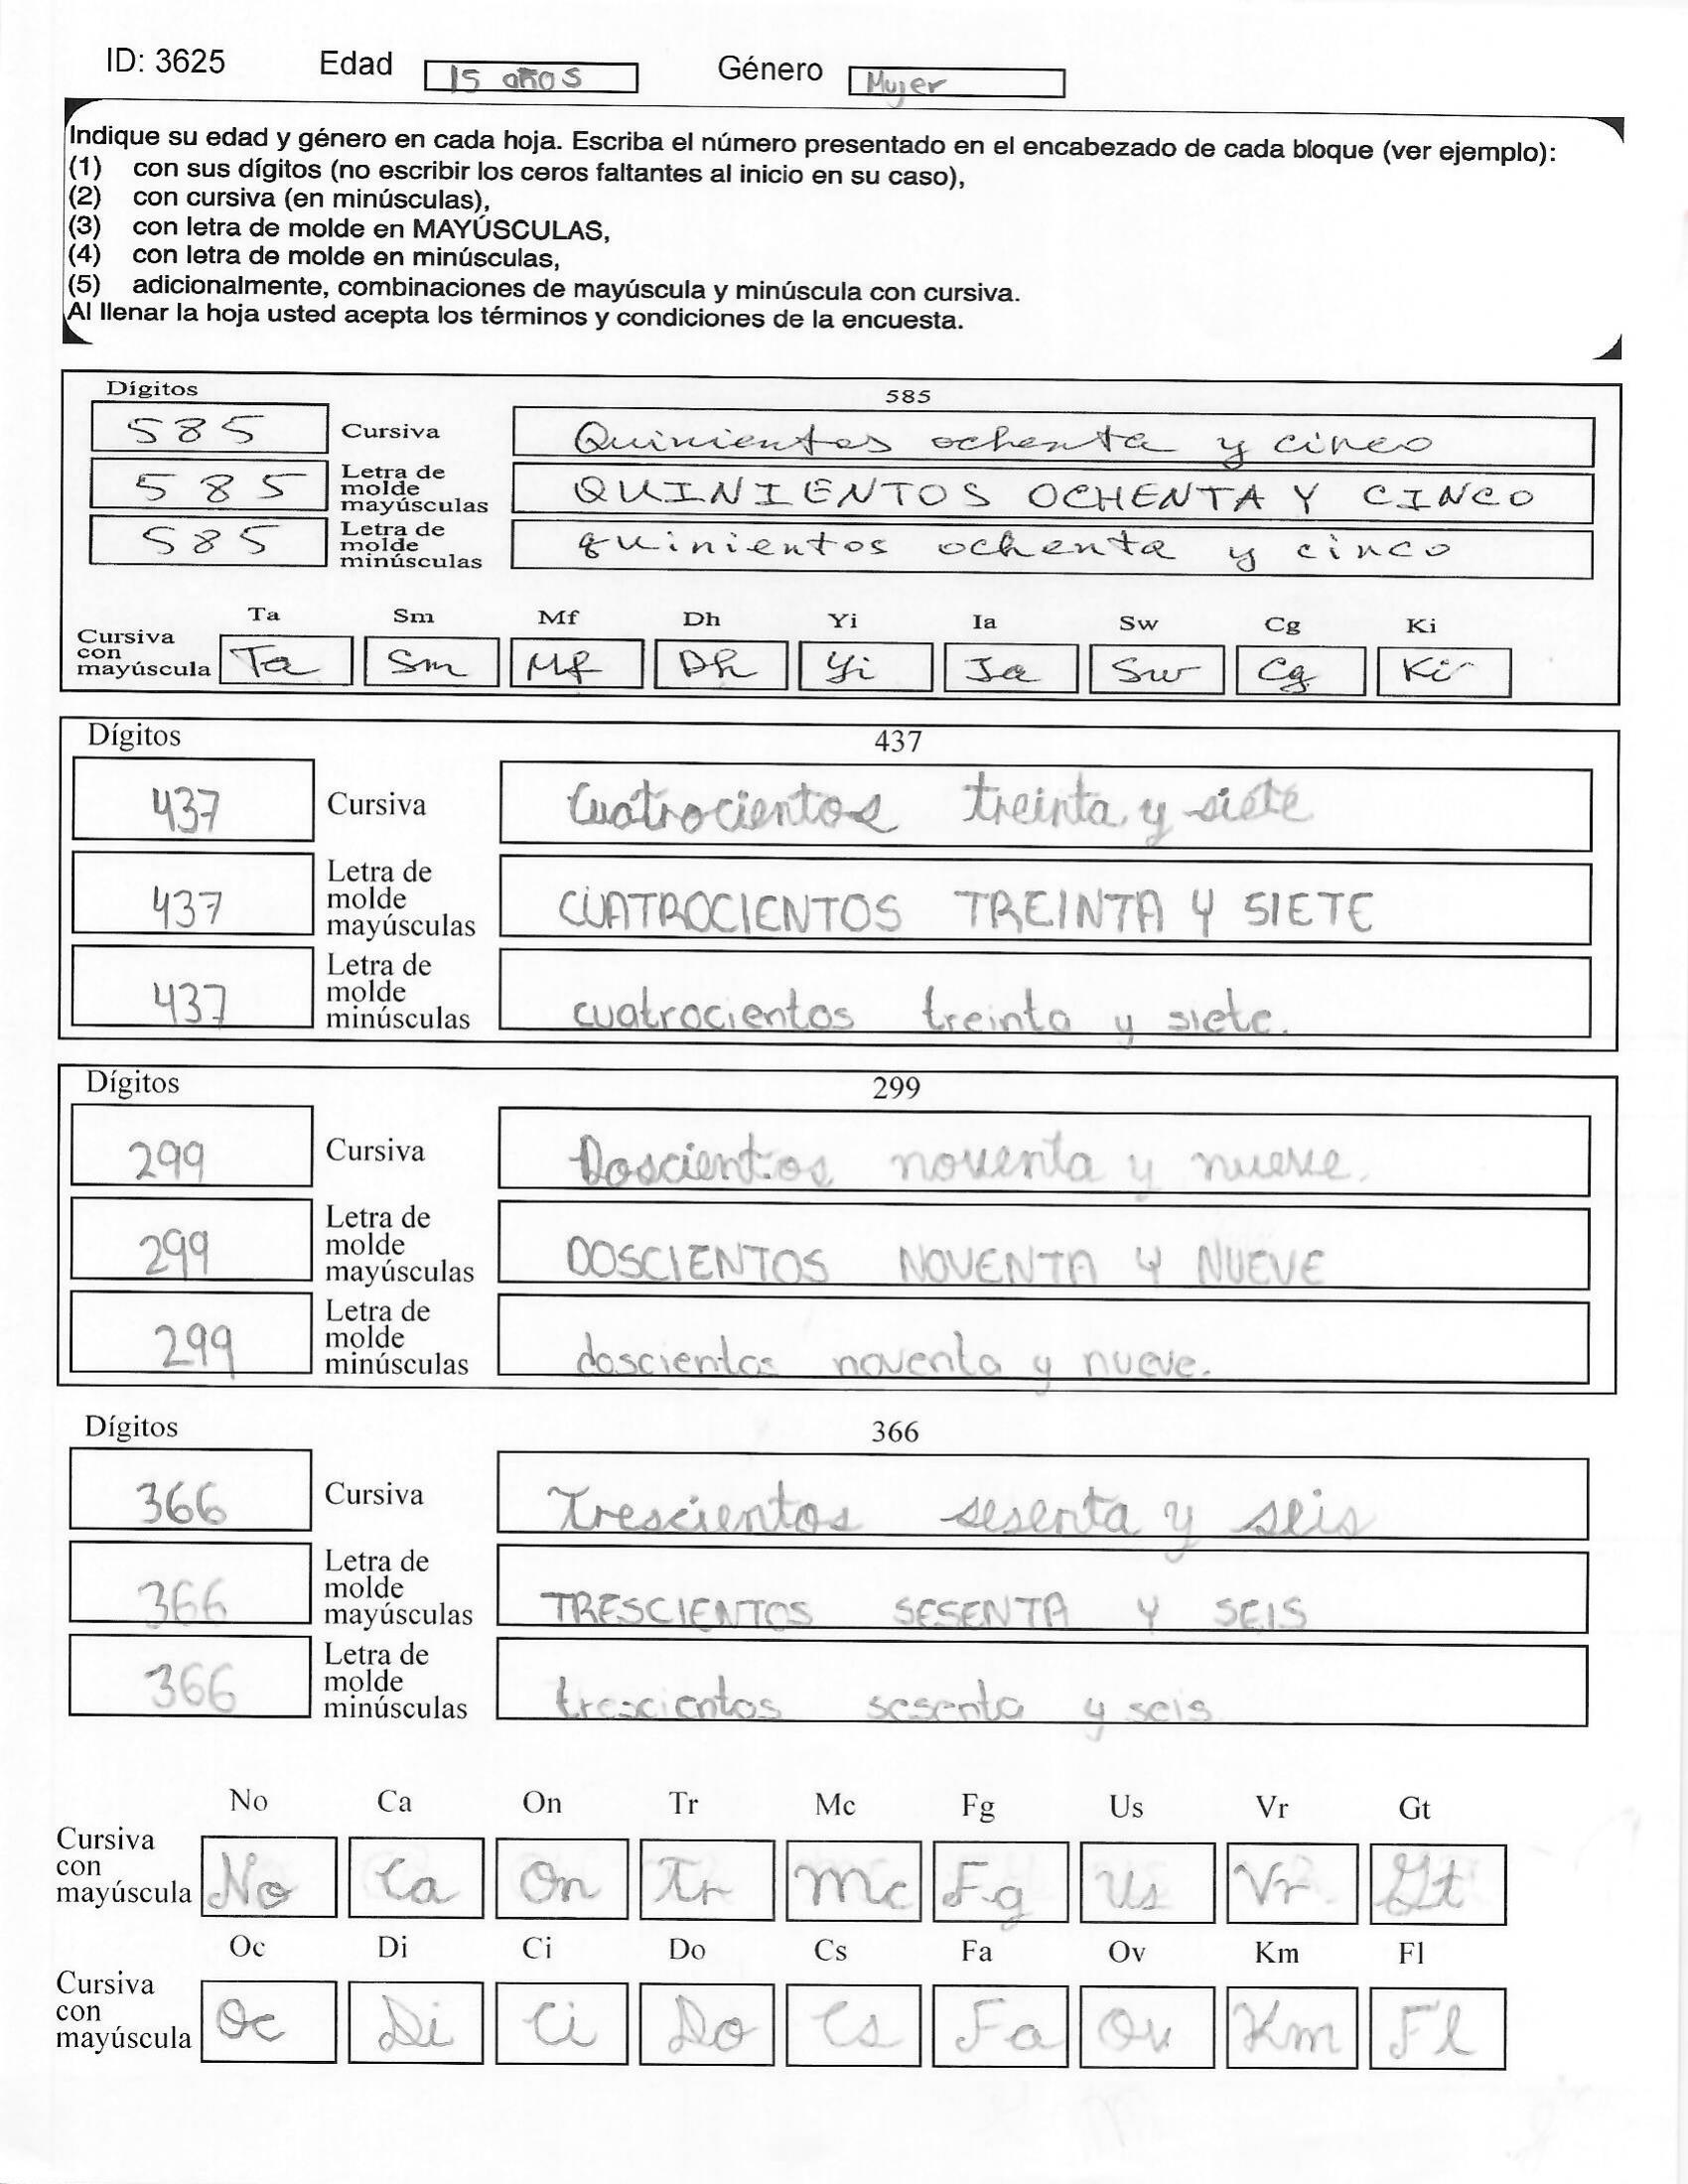 ID: 3625 Edad 15 años Género Mujer
Indique su edad y género en cada hoja. Escriba el número presentado en el encabezado de cada bloque (ver ejemplo):
(1) con sus dígitos (no escribir los ceros faltantes al inicio en su caso),
(2) con cursiva (en minúsculas),
(3) con letra de molde en MAYÚSCULAS,
(4) con letra de molde en minúsculas,
(5) adicionalmente, combinaciones de mayúscula y minúscula con cursiva.
Al llenar la hoja usted acepta los términos y condiciones de la encuesta.
Dígitos 585
585 Cursiva Quinientos ochenta y cinco
585 Letra de molde mayúsculas QUINIENTOS OCHENTA Y CINCO
585 Letra de molde minúsculas quinientos ochenta y cinco
Ta Sm Mf Dh Yi Ia Sw Cg Ki
Cursiva con mayúscula Ta Sm Mf Dh Yi Ia Sw Cg Ki
Dígitos 437
437 Cursiva Cuatrocientos treinta y siete
437 Letra de molde mayúsculas CUATROCIENTOS TREINTA Y SIETE
437 Letra de molde minúsculas cuatrocientos treinta y siete.
Dígitos 299
299 Cursiva Doscientos noventa y nueve.
299 Letra de molde mayúsculas DOSCIENTOS NOVENTA Y NUEVE
299 Letra de molde minúsculas doscientos noventa y nueve.
Dígitos 366
366 Cursiva Trescientos sesenta y seis
366 Letra de molde mayúsculas TRESCIENTOS SESENTA Y SEIS
366 Letra de molde minúsculas trescientos sesenta y seis
No Ca On Tr Mc Fg Us Vr Gt
Cursiva con mayúscula No Ca On Tr Mc Fg Us Vr Gt
Oc Di Ci Do Cs Fa Ov Km Fl
Cursiva con mayúscula Oc Di Ci Do Cs Fa Ov Km Fl